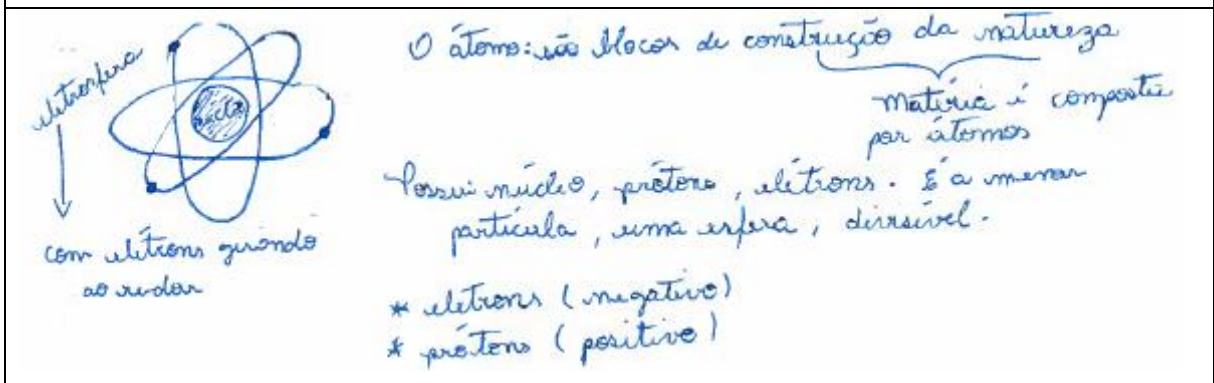 eletrosfera
núcleo
com elétrons girando
ao redor
O átomo: são blocos de construção da natureza
matéria é composta
por átomos
Possui núcleo, prótons, elétrons. É a menor
partícula, uma esfera, divisível.
* eletrons (negativo)
* prótons (positivo)